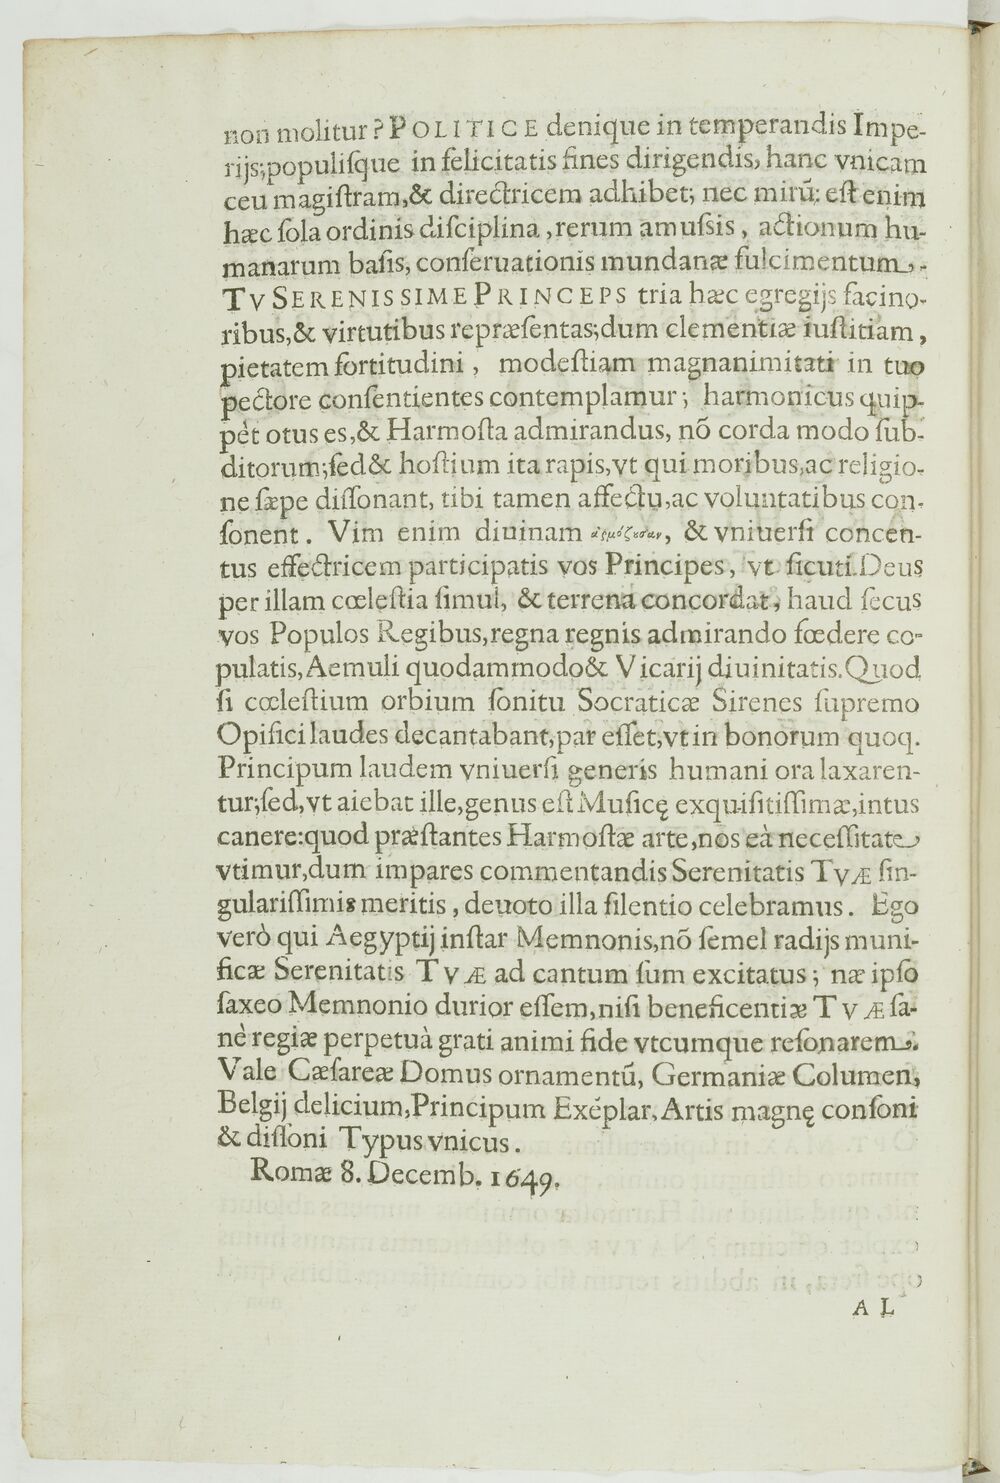 non molitur? POLITICE denique in temperandis Impe-
rijs; populiſque in felicitatis fines dirigendis, hanc vnicam
ceu magiſtram, & directricem adhibet; nec mirũ: eſt enim
hæc ſola ordinis diſciplina, rerum amuſsis, actionum hu-
manarum baſis, conſeruationis mundanæ fulcimentum.
TV SERENISSIME PRINCEPS tria hæc egregijs facino-
ribus, & virtutibus repræſentas; dum clementiæ iuſtitiam,
pietatem fortitudini, modeſtiam magnanimitati in tuo
pectore conſentientes contemplamur; harmonicus quip-
pèt otus es, & Harmoſta admirandus, nõ corda modo ſub-
ditorum; ſed & hoſtium ita rapis, vt qui moribus, ac religio-
ne ſæpe diſſonant, tibi tamen affectu, ac voluntatibus con-
ſonent. Vim enim diuinam, & vniuerſi concen-
tus effectricem participatis vos Principes, vt ſicuti Deus
per illam cœleſtia ſimul, & terrena concordat, haud ſecus
vos Populos Regibus, regna regnis admirando fœdere co-
pulatis, Aemuli quodammodo & Vicarij diuinitatis. Quod
ſi cœleſtium orbium ſonitu Socraticæ Sirenes ſupremo
Opifici laudes decantabant, par eſſet, vt in bonorum quoq.
Principum laudem vniuerſi generis humani ora laxaren-
tur; ſed, vt aiebat ille, genus eſt Muſicę exquiſitiſſimæ, intus
canere: quod præſtantes Harmoſtæ arte, nos eà neceſſitate
vtimur, dum impares commentandis Serenitatis TVÆ ſin-
gulariſſimis meritis, deuoto illa ſilentio celebramus. Ego
verò qui Aegyptij inſtar Memnonis, nõ ſemel radijs muni-
ficæ Serenitatis TVÆ ad cantum ſum excitatus; næ ipſo
ſaxeo Memnonio durior eſſem, niſi beneficentiæ TVÆ ſa-
nè regiæ perpetuà grati animi fide vtcumque reſonarem.
Vale Cæſareæ Domus ornamentũ, Germaniæ Columen,
Belgij delicium, Principum Exéplar, Artis magnę conſoni
& diſſoni Typus vnicus.
Romæ 8. Decemb. 1649.
AL